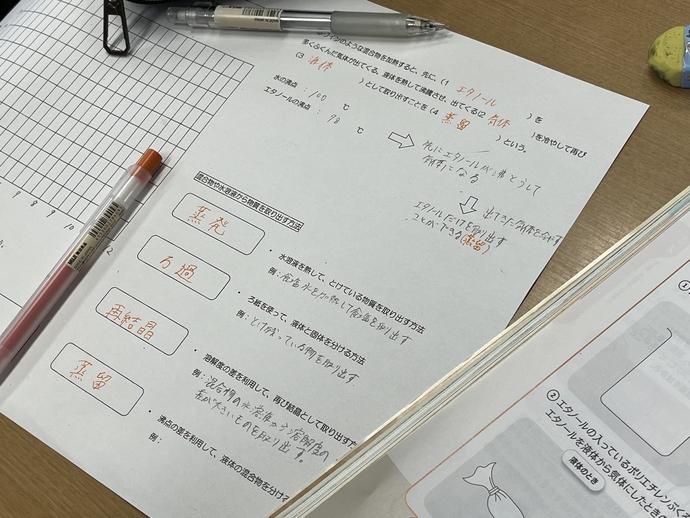 インのような混合物を加熱すると、先に、(1 エタノール )を
多くふくんだ気体が出てくる。液体を熱して沸騰させ、出てくる(2 気体 )を冷やして再び
(3 液体 )として取り出すことを(4 蒸留 )という。
水の沸点 : 100 ℃
エタノールの沸点 : 78 ℃
先にエタノールが沸とうして
気体になる
出てきた気体を冷やす
エタノールだけを取り出す
ことができる(蒸留)
混合物や水溶液から物質を取り出す方法
蒸発
・水溶液を熱して、とけている物質を取り出す方法
例:食塩水を加熱して食塩を取り出す
ろ過
・ろ紙を使って、液体と固体を分ける方法
例:とけ残っている物を取り出す
再結晶
・溶解度の差を利用して、再び結晶として取り出す方
例:混合物の水溶液から溶解度の
差が大きいものを取り出す。
蒸留
・沸点の差を利用して、液体の混合物を分ける
例:
7 8 9 10
2
②エタノールの入っているポリエチレンふくろ
エタノールを液体から気体にしたときの
液体のとき